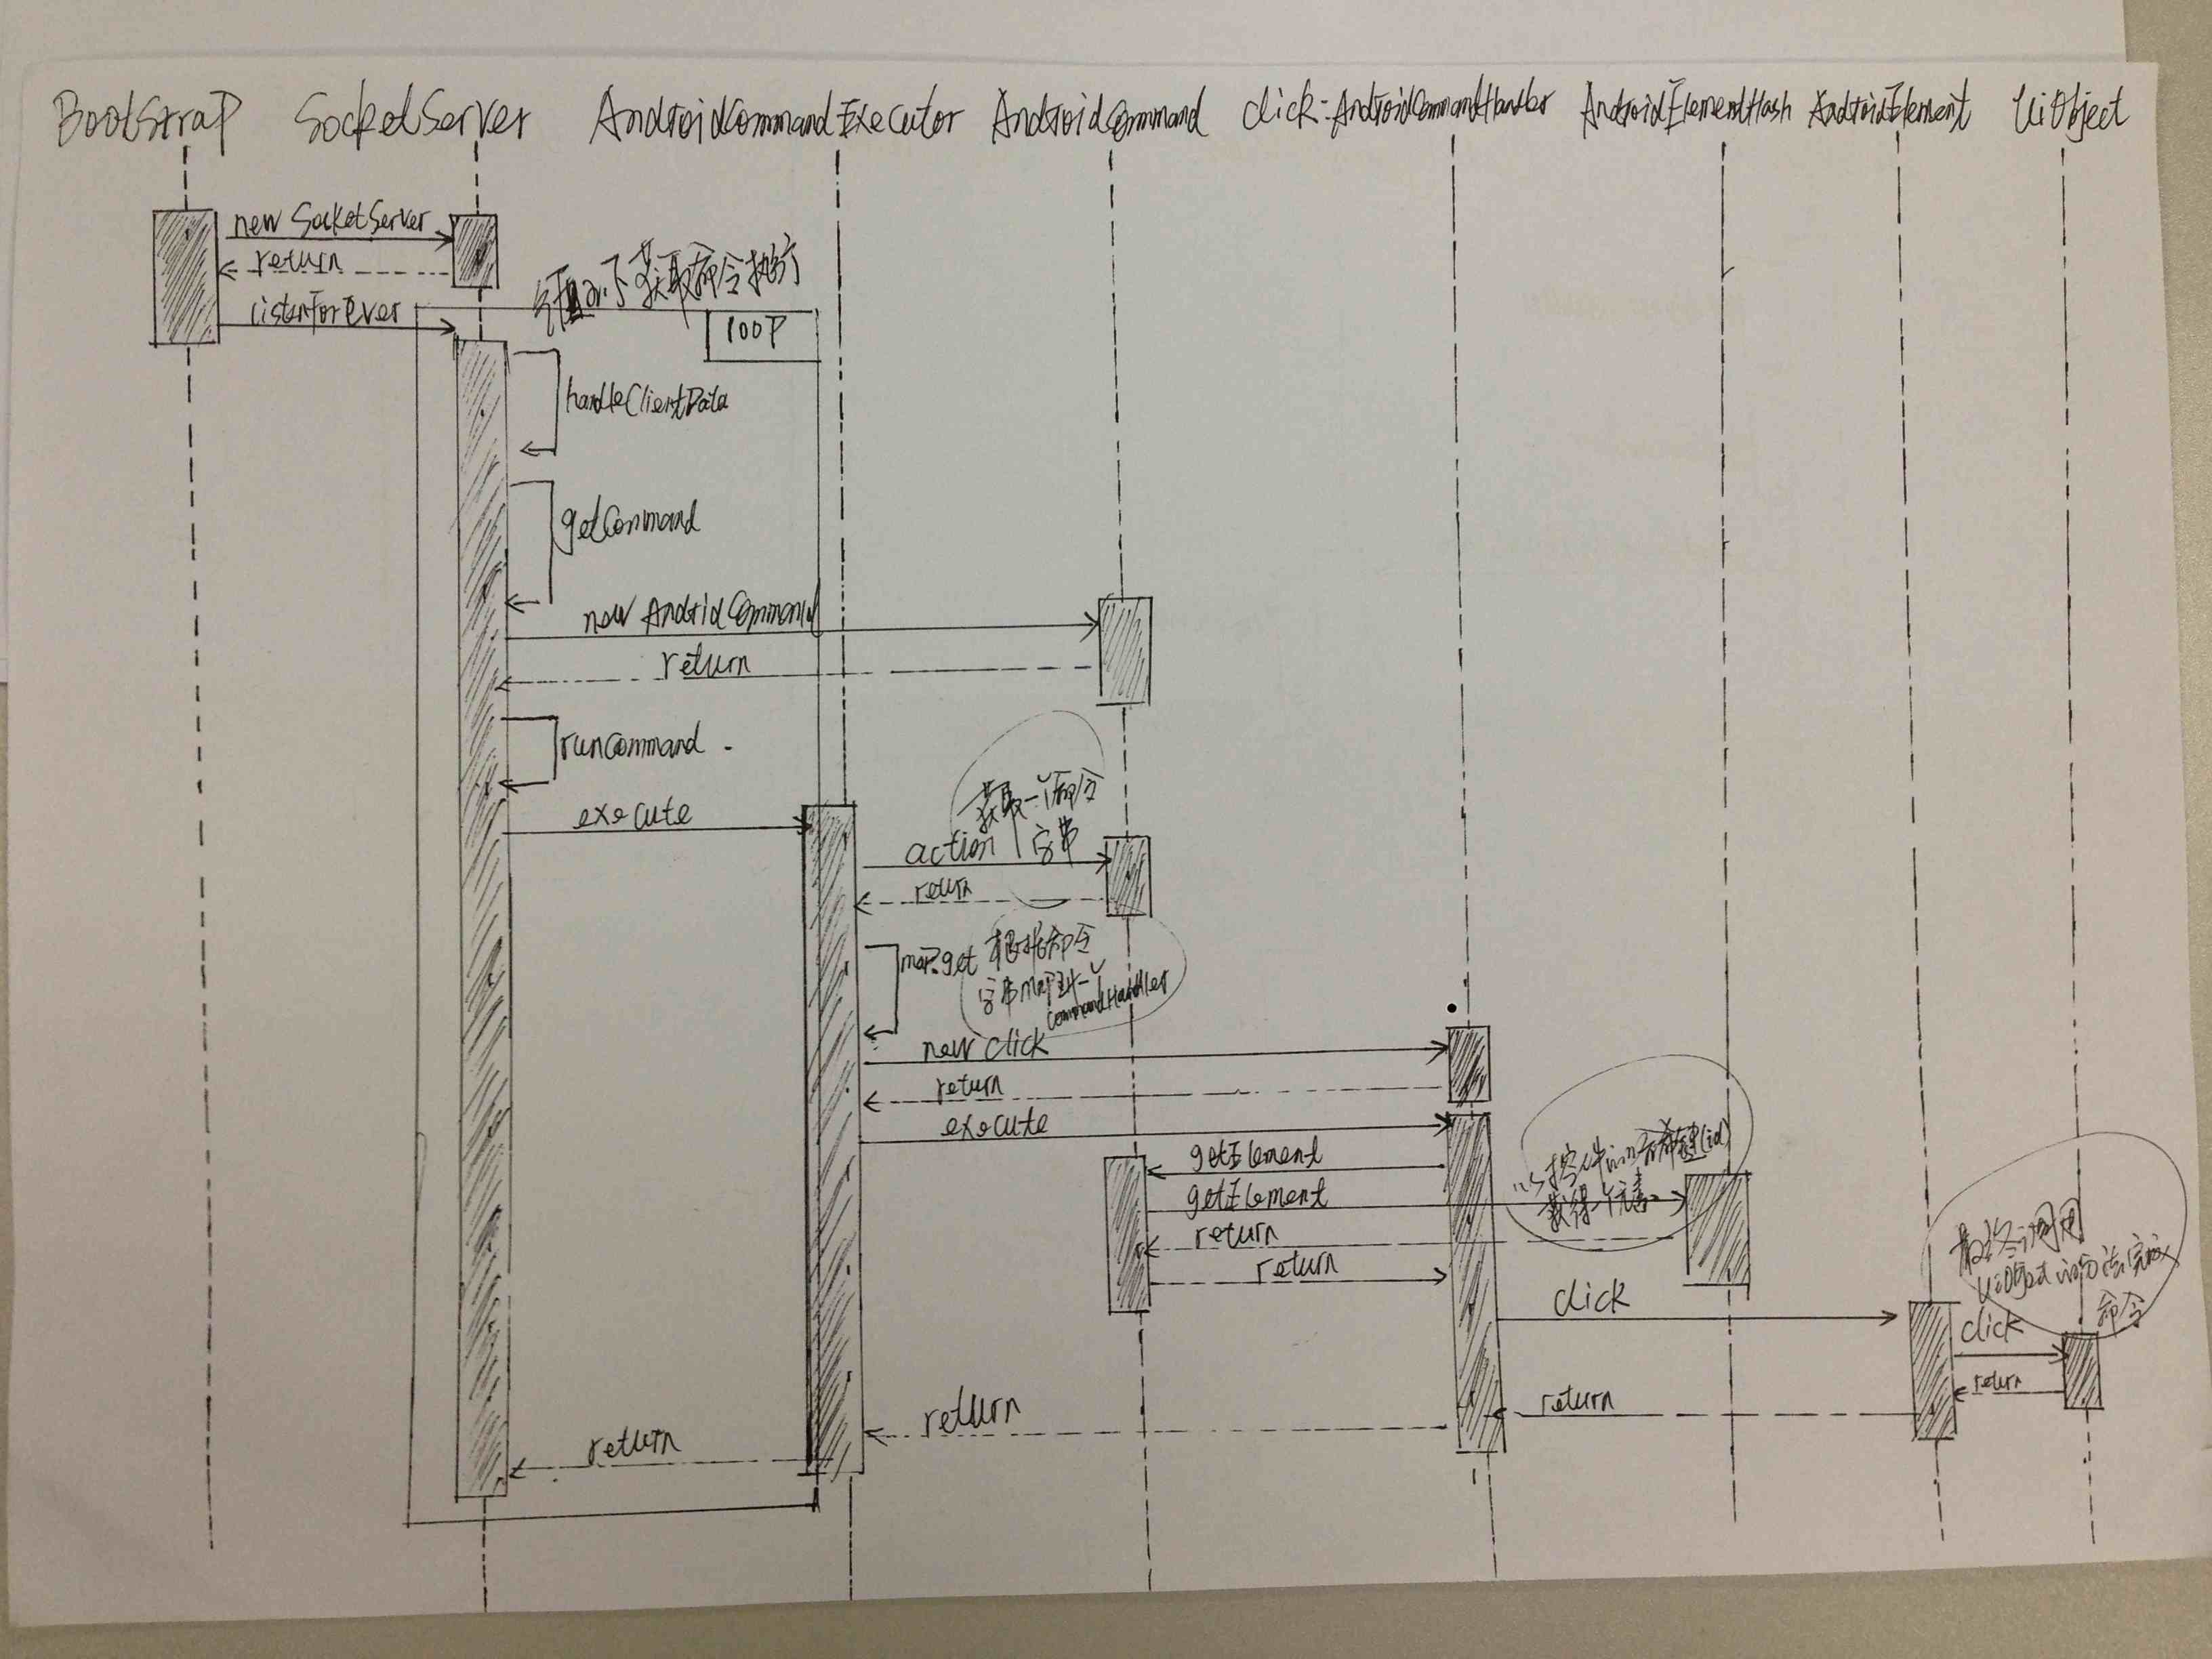 BootStraP
SocketServer
AndroidCommandExecutor
AndroidCommand
click:AndroidCommandHandler
AndroidElementHash
AndroidElement
UiObject
new SocketServer
return
listenForEver
获取命令执行
loop
handleClientData
getCommand
new AndridCommand
return
runCommand
execute
获取一个命令
字串
action
return
map.get 根据命令
字串map到一个
commandHandler
new click
return
execute
getElement
getElement
以控件的哈希键(id)
获得一个元素
return
return
click
最终会调用
UiObject的方法完成
命令
click
return
return
return
return